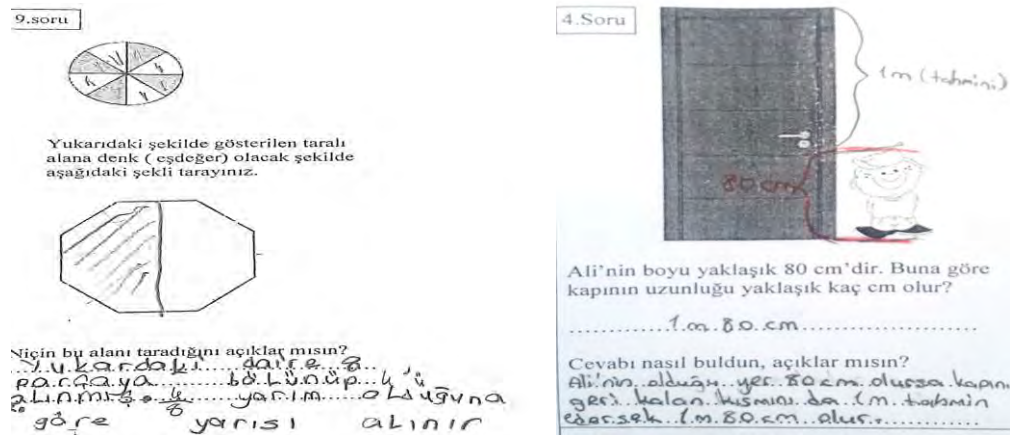 9.soru
Yukarıdaki şekilde gösterilen taralı
alana denk ( eşdeğer) olacak şekilde
aşağıdaki şekli tarayınız.
Niçin bu alanı taradığını açıklar mısın?
Yukardaki daire 8
parçaya bölünüp 4'ü
alınmış. 4/8 yarım olduğuna
göre yarısı alınır
4.Soru
1m (tahmini)
80 cm
Ali'nin boyu yaklaşık 80 cm'dir. Buna göre
kapının uzunluğu yaklaşık kaç cm olur?
1 m 80 cm
Cevabı nasıl buldun, açıklar mısın?
Ali'nin olduğu yer 80 cm olursa kapının
geri kalan kısmını da 1m tahmin
edersek 1m 80 cm olur.